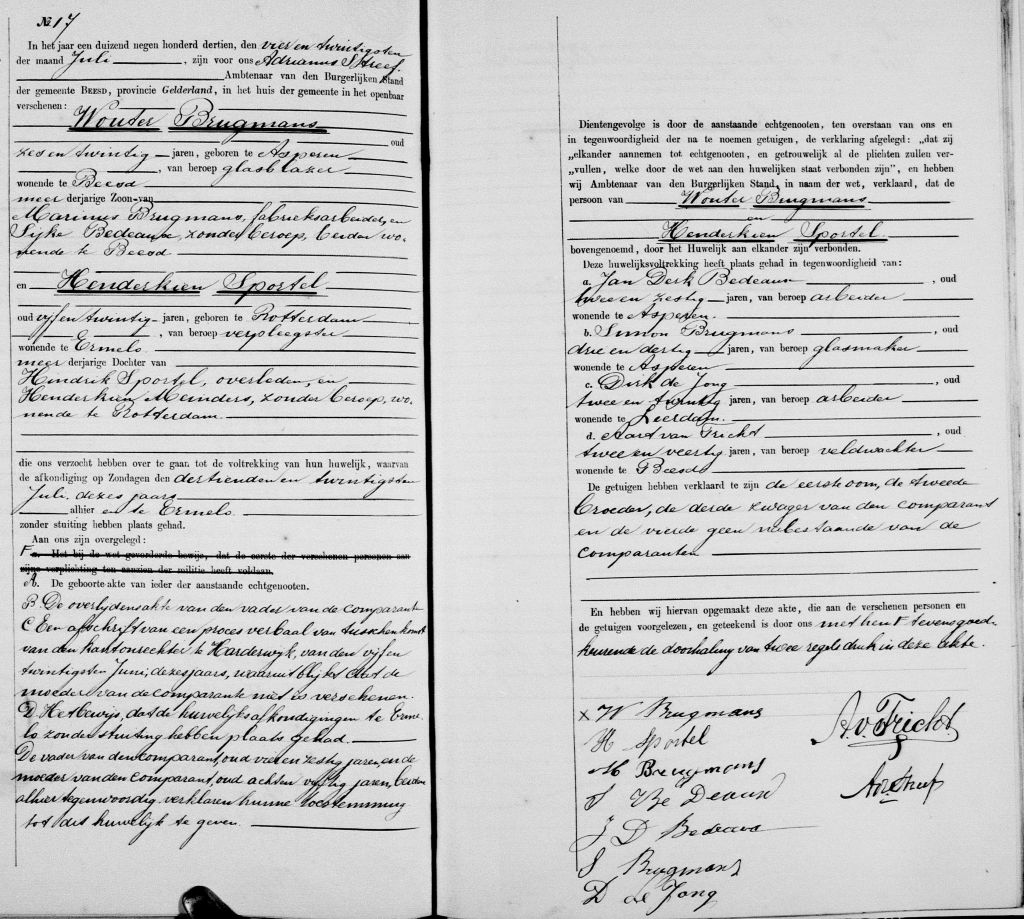 № 17
In het jaar een duizend negen honderd dertien, den vier en twintigsten
der maand Juli, zijn voor ons Adrianus Streef.
Ambtenaar van den Burgerlijken Stand
der gemeente BEESD, provincie Gelderland, in het huis der gemeente in het openbaar
verschenen:
Wouter Brugmans
oud
zes en twintig jaren, geboren te Asperen
, van beroep glasblazer
wonende te Beesd
meerderjarige Zoon van
Marinus Brugmans, fabrieksarbeider, en
Sijke Bedeaux, zonder beroep, beiden wo-
nende te Beesd
en Henderkien Sportel
oud vijf en twintig jaren, geboren te Rotterdam
, van beroep verpleegster
wonende te Ermelo
meerderjarige Dochter van
Hindrik Sportel, overleden, en
Henderkien Meinders, zonder beroep, wo-
nende te Rotterdam
die ons verzocht hebben over te gaan tot de voltrekking van hun huwelijk, waarvan
de afkondiging op Zondagen den dertienden en twintigsten
Juli dezes jaars
alhier en te Ermelo
zonder stuiting hebben plaats gehad.
Aan ons zijn overgelegd:
F a. Het bij de wet gevorderde bewijs, dat de eerste der verschenen personen aan
zijne verplichting ten aanzien der militie heeft voldaan.
A. De geboorte-akte van ieder der aanstaande echtgenooten.
B. De overlijdensakte van den vader van de comparante
C Een afschrift van een proces verbaal van tusschenkomst
van den kantonrechter te Harderwijk, van den vijf en
twintigsten Juni, dezes jaars, waaruit blijkt dat de
moeder van de comparante niet is verschenen.
D. Het bewijs, dat de huwelijksafkondigingen te Erme-
lo zonder stuiting hebben plaats gehad.
De vader van den comparant, oud vier en zestig jaren, en de
moeder van den comparant, oud acht en vijftig jaren, beiden
alhier tegenwoordig verklaren hunne toestemming
tot dit huwelijk te geven.
Dientengevolge is door de aanstaande echtgenooten, ten overstaan van ons en
in tegenwoordigheid der na te noemen getuigen, de verklaring afgelegd: „dat zij
„elkander aannemen tot echtgenooten, en getrouwelijk al de plichten zullen ver-
„vullen, welke door de wet aan den huwelijken staat verbonden zijn”, en hebben
wij Ambtenaar van den Burgerlijken Stand, in naam der wet, verklaard, dat de
persoon van Wouter Brugmans
en
Henderkien Sportel
bovengenoemd, door het Huwelijk aan elkander zijn verbonden.
Deze huwelijksvoltrekking heeft plaats gehad in tegenwoordigheid van:
a. Jan Derk Bedeaux, oud
twee en zestig jaren, van beroep arbeider
wonende te Asperen.
b. Simon Brugmans, oud
drie en dertig jaren, van beroep glasmaker
wonende te Asperen
c. Dirk de Jong, oud
twee en twintig jaren, van beroep arbeider
wonende te Leerdam.
d. Aart van Tricht, oud
twee en veertig jaren, van beroep veldwachter
wonende te Beesd
De getuigen hebben verklaard te zijn de eerste oom, de tweede
broeder, de derde zwager van den comparant
en de vierde geen nabestaande van de
comparanten
En hebben wij hiervan opgemaakt deze akte, die aan de verschenen personen en
de getuigen voorgelezen, en geteekend is door ons met hen F tevens goed-
keurende de doorhaling van twee regels druk in deze akte.
x W Brugmans
H Sportel
M Brugmans
S Be Deaux
J D Bedeaux
S Brugmans
D de Jong
A. v. Tricht
Adr Streef